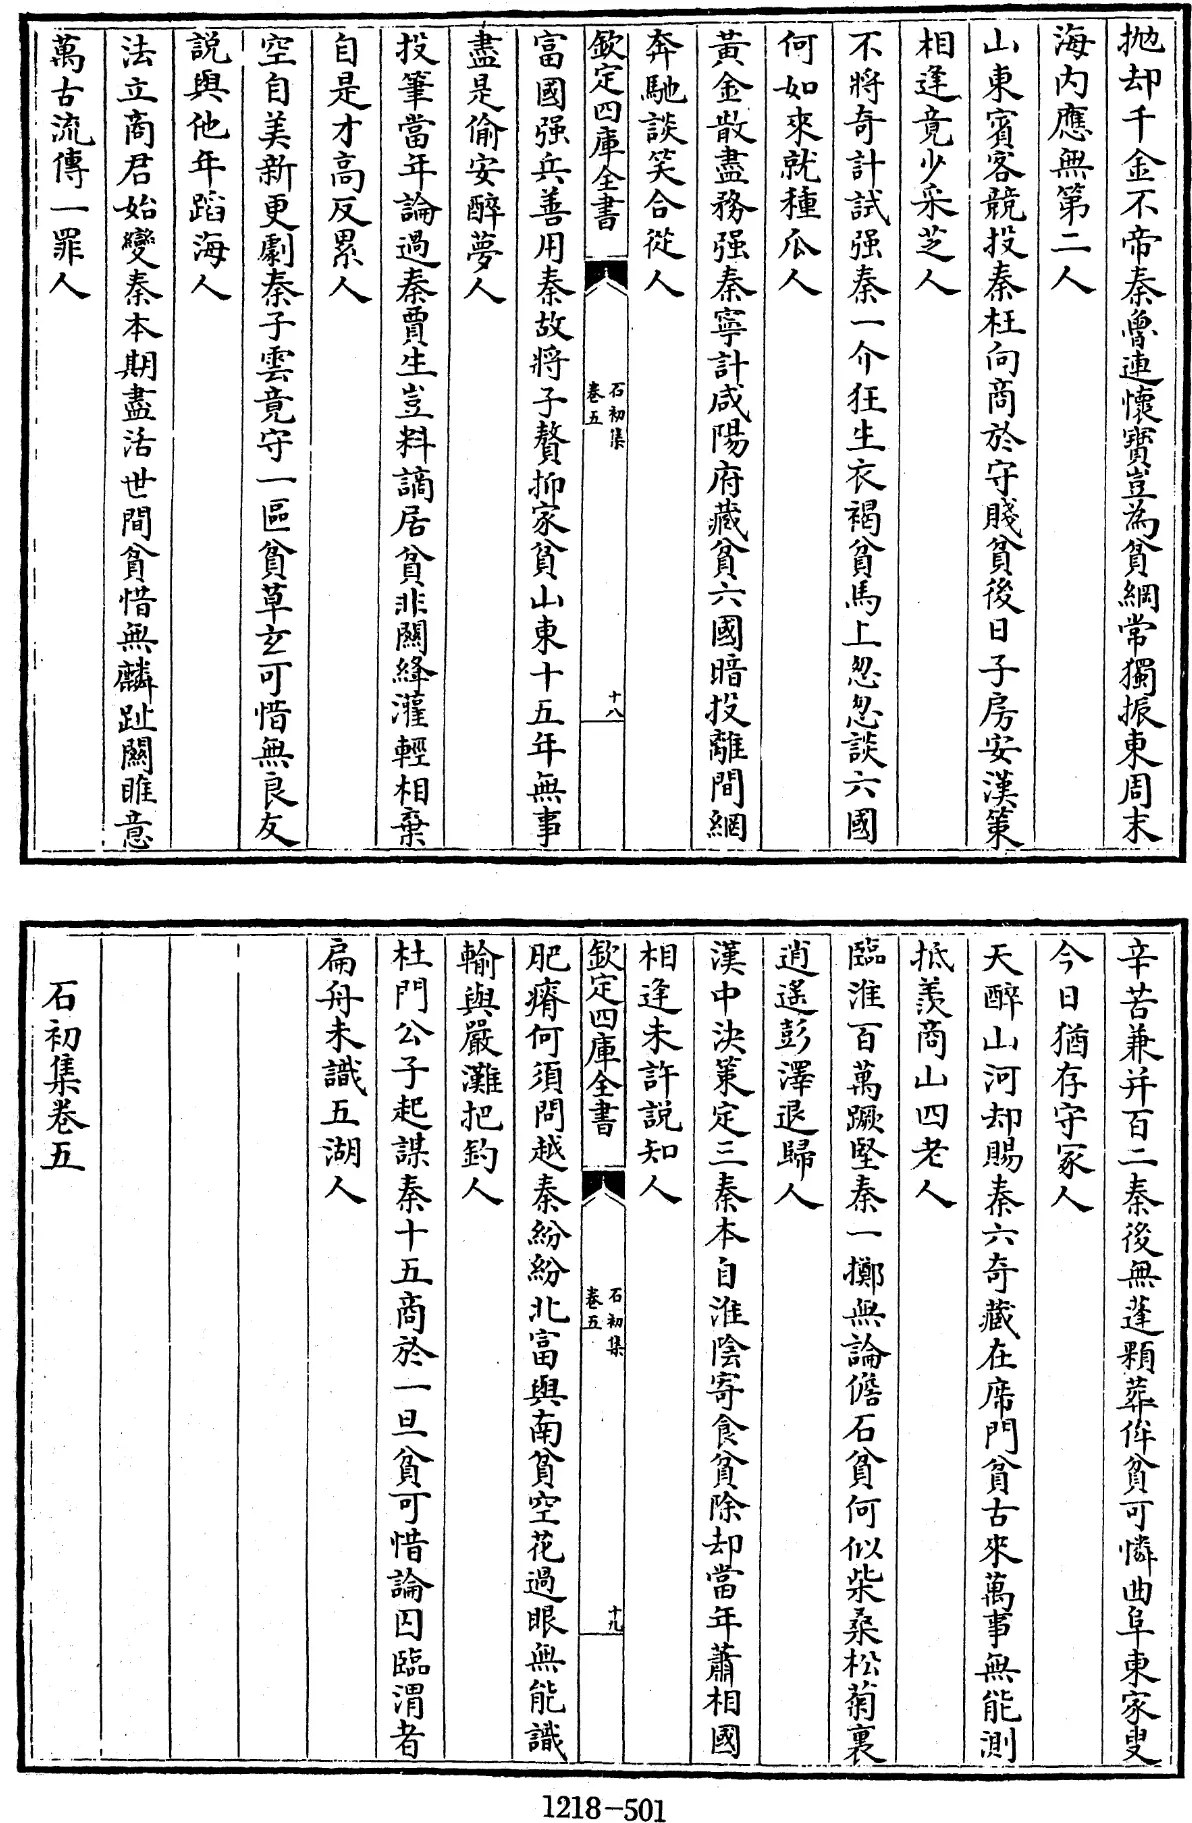 抛却千金不帝秦魯連懷寶豈為貧綱常獨振東周末
海内應無第二人
山東賓客競投秦枉向商於守賤貧後日子房安漢策
相逢竟少采芝人
不將奇計試强秦一介狂生衣褐貧馬上怱怱談六國
何如來就種瓜人
黄金散盡務强秦寧計咸陽府藏貧六國暗投離間網
奔馳談笑合從人
欽定四庫全書
石初集
卷五
十八
富國强兵善用秦故將子贅抑家貧山東十五年無事
盡是偷安醉夢人
投筆當年論過秦賈生豈料謫居貧非關絳灌輕相棄
自是才高反累人
空自美新更劇秦子雲竟守一區貧草玄可惜無良友
説與他年蹈海人
法立商君始變秦本期盡活世間貧惜無麟趾關雎意
萬古流傳一罪人
辛苦兼并百二秦後無蓬顆葬侔貧可憐曲阜東家叟
今日猶存守冢人
天醉山河却賜秦六奇藏在席門貧古來萬事無能測
抵羨商山四老人
臨淮百萬蹶堅秦一擲無論儋石貧何似柴桑松菊裏
逍遥彭澤退歸人
漢中決策定三秦本自淮陰寄食貧除却當年蕭相國
相逢未許説知人
欽定四庫全書
石初集
卷五
十九
肥瘠何須問越秦紛紛北富與南貧空花過眼無能識
輸與嚴灘把釣人
杜門公子起謀秦十五商於一旦貧可惜論囚臨渭者
扁舟未識五湖人
石初集卷五
1218-501